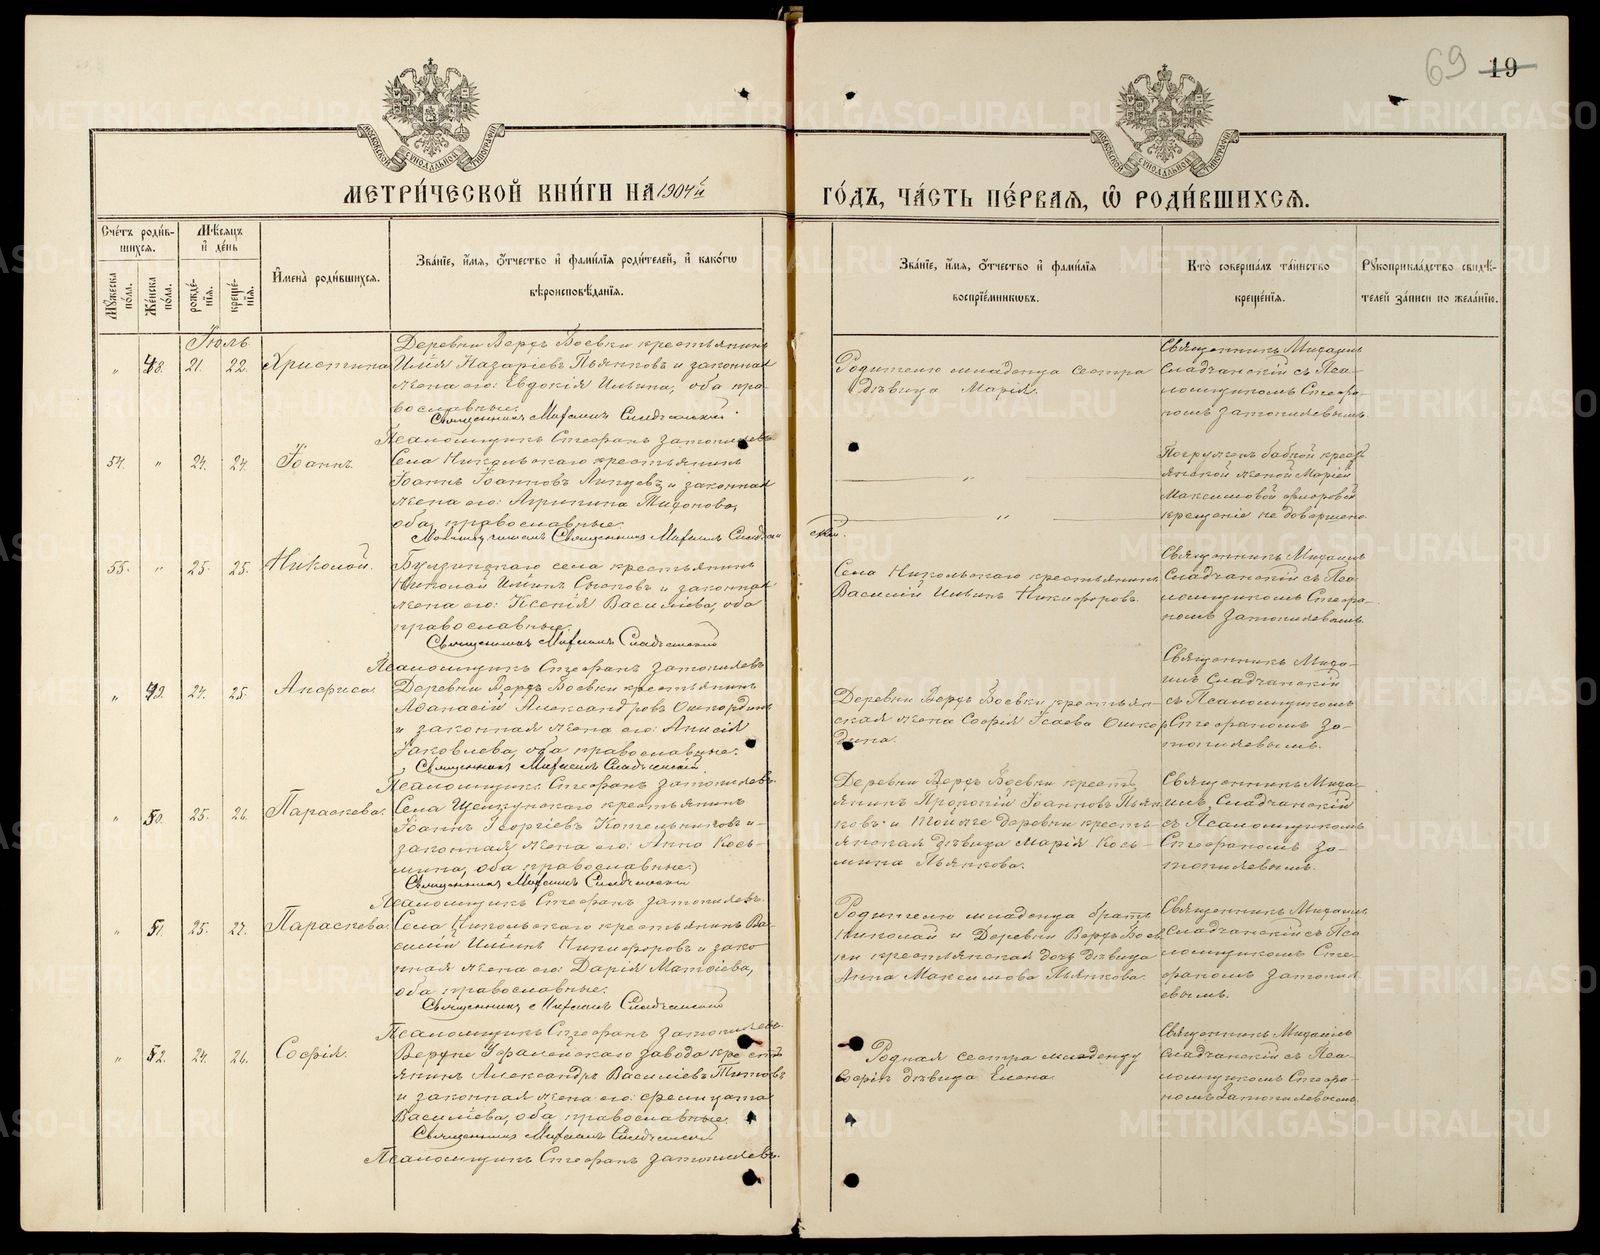 69 19
МЕТРИ́ЧЕСКОЙ КНИ́ГИ НА 1904й ГО́ДЪ, ЧА́СТЬ ПЕ́РВАЯ, Ѽ РОДИ́ВШИХСЯ.
Сче́тъ роди́в-
шихся.
Мѣсяцъ
и҆ де́нь
Мꙋ́жеска
по́ла.
Же́нска
по́ла.
рожде́-
нїя.
креще́-
нїя.
И҆мена̀ роди́вшихся.
Зва́нїе, и҆́мя, ѻ҆́тчество и҆ фами́лїя роди́телей, и҆ како́гѡ
вѣроисповѣ́данїя.
Зва́нїе, и҆́мя, ѻ҆́тчество и҆ фами́лїя
воспрїе́мникѡвъ.
Кто̀ соверша́лъ та́инство
креще́нїя.
Рꙋкоприкла́дство свидѣ́-
телей за́писи по жела́нїю.
Іюль
„ 48. 21. 22. Христина
Деревни Верхъ Боевки крестьянинъ
Илія Назаріевъ Пьянковъ и законная
жена его: Евдокія Ильина, оба пра-
вославные.
Священникъ Михаилъ Сладчанскій.
Псаломщикъ Стефанъ Затопляевъ
Родителю младенца сестра
дѣвица Марія.
Священникъ Михаилъ
Сладчанскій съ Пса-
ломщикомъ Стефа-
номъ Затопляевымъ.
54. „ 24. 24. Іоаннъ.
Села Никольскаго крестьянинъ
Іоаннъ Іоанновъ и законная
жена его: Агрипина
оба православные.
Священникъ Михаилъ Сладчан
скій.
„
„
Погруженъ бабкой кресть
янской женой Маріей
Максимовой
крещеніе не довершено
55. „ 25. 25. Николай.
села крестьянинъ
Николай Ильинъ и законная
жена его: Ксенія Василіева, оба
православные.
Священникъ Михаилъ Сладчанскій
Псаломщикъ Стефанъ Затопляевъ
Села Никольскаго крестьянинъ
Василій Ильинъ Никифоровъ.
Священникъ Михаилъ
Сладчанскій съ Пса-
ломщикомъ Стефа-
номъ Затопляевымъ.
„ 49. 24. 25. Анфиса.
Деревни Верхъ Боевки крестьянинъ
Афанасій Александровъ Ошкординъ
и законная жена его: Анисія
Іаковлева, оба православные.
Священникъ Михаилъ Сладчанскій
Псаломщикъ Стефанъ Затопляевъ
Деревни Верхъ Боевки крестьян-
ская жена Софія Исаева Ошкор
дина.
Священникъ Миха-
илъ Сладчанскій
съ Псаломщикомъ
Стефаномъ За-
топляевымъ.
„ 50. 25. 26. Параскева.
Села Щелкунскаго крестьянинъ
Іоаннъ Георгіевъ Котельниковъ и
законная жена его: Анна Кось-
мина, оба православные.
Священникъ Михаилъ Сладчанскій
Псаломщикъ Стефанъ Затопляевъ.
Деревни Верхъ Боевки кресть
янинъ Прокопій Іоанновъ Пьян
ковъ и тойже деревни кресть-
янская дѣвица Марія Кось-
мина Пьянкова.
Священникъ Миха-
илъ Сладчанскій
съ Псаломщикомъ
Стефаномъ За-
топляевымъ.
„ 51. 25. 27. Параскева.
Села Никольскаго крестьянинъ Ва-
силій Ильинъ Никифоровъ и зако
нная жена его: Дарія Матфіева,
оба православные.
Священникъ Михаилъ Сладчанскій
Псаломщикъ Стефанъ Затопляевъ.
Родителю младенца братъ
Николай и Деревни Верхъ Боев
ки крестьянская дочь дѣвица
Анна Максимова Пьянкова.
Священникъ Михаилъ
Сладчанскій съ Пса
ломщикомъ Сте-
фаномъ Затопля
евымъ.
„ 52. 24. 26. Софія.
Верхне Уфалейскаго завода кресть
янинъ Александръ Василіевъ Титовъ
и законная жена его:
Василіева, оба православные.
Священникъ Михаилъ Сладчанскій
Псаломщикъ Стефанъ Затопляевъ.
Родная сестра младенцу
Софіи дѣвица Елена.
Священникъ Михаилъ
Сладчанскій съ Пса-
ломщикомъ Стефа-
номъ Затопляевымъ.
METRIKI.GASO-URAL.RU